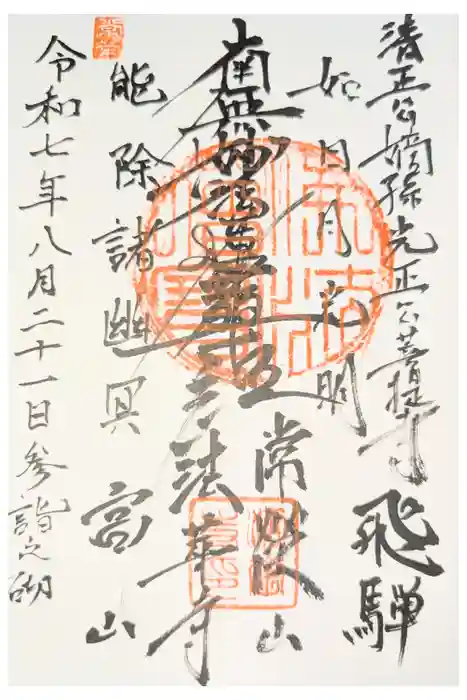 清正公嫡孫光正公菩提寺 飛騨
如日月光明
南無妙法蓮華経
法華寺
能除諸幽冥
高山
令和七年八月二十一日参詣之砌